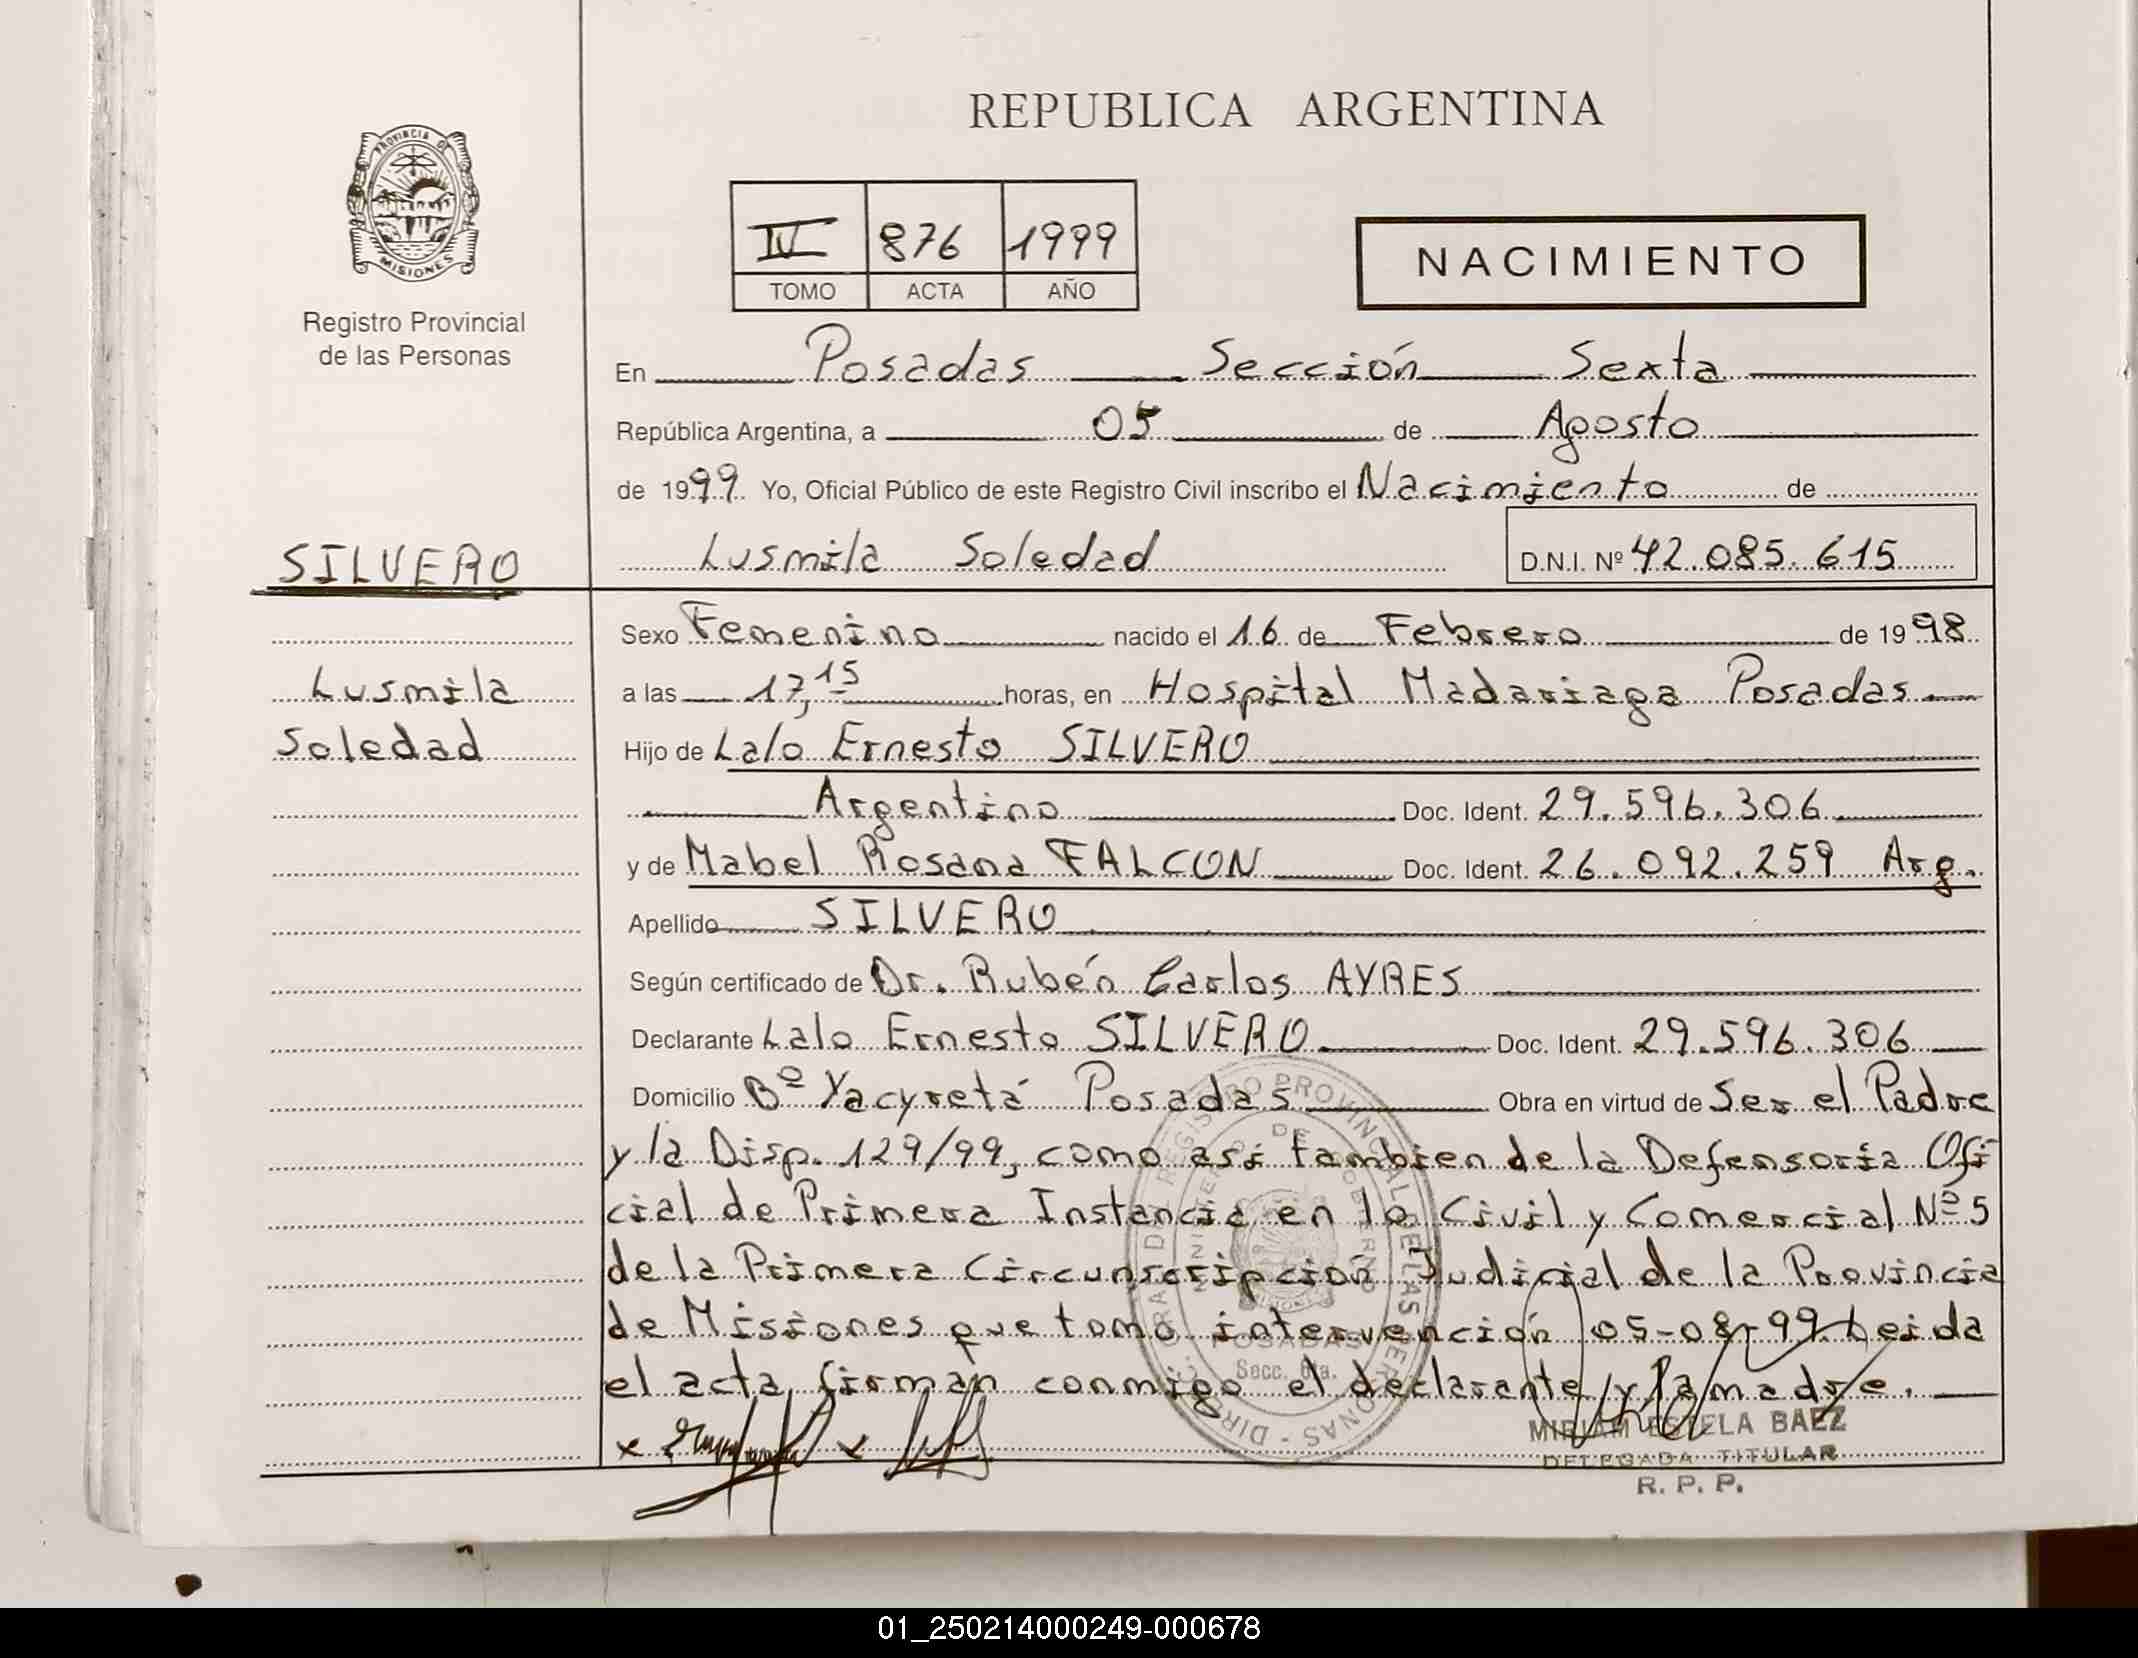 REPUBLICA ARGENTINA
PROVINCIA DE
MISIONES
Registro Provincial
de las Personas
IV 876 1999
TOMO ACTA AÑO
NACIMIENTO
En Posadas Sección Sexta
República Argentina, a 05 de Agosto
de 1999 Yo, Oficial Público de este Registro Civil inscribo el Nacimiento de
SILVERO
Lusmila Soledad D.N.I. Nº 42.085.615
Sexo Femenino nacido el 16 de Febrero de 1998
Lusmila
a las 17,15 horas, en Hospital Madariaga Posadas
Soledad
Hijo de Lalo Ernesto SILVERO
Argentino Doc. Ident. 29.596.306
y de Mabel Rosana FALCON Doc. Ident. 26.092.259 Arg.
Apellido SILVERO
Según certificado de Dr. Rubén Carlos AYRES
Declarante Lalo Ernesto SILVERO Doc. Ident. 29.596.306
Domicilio Bº Yacyretá Posadas Obra en virtud de Ser el Padre
y la Disp. 129/99, como asi tambien de la Defensoria Ofi
cial de Primera Instancia en lo Civil y Comercial Nº 5
de la Primera Circunscripción Judicial de la Provincia
de Misiones que tomo intervención 05-08-99. Leida
el acta, firman conmigo el declarante y la madre.
POSADAS
Secc. 6ta.
MIRIAM ESTELA BAEZ
DELEGADA TITULAR
R. P. P.
01_250214000249-000678